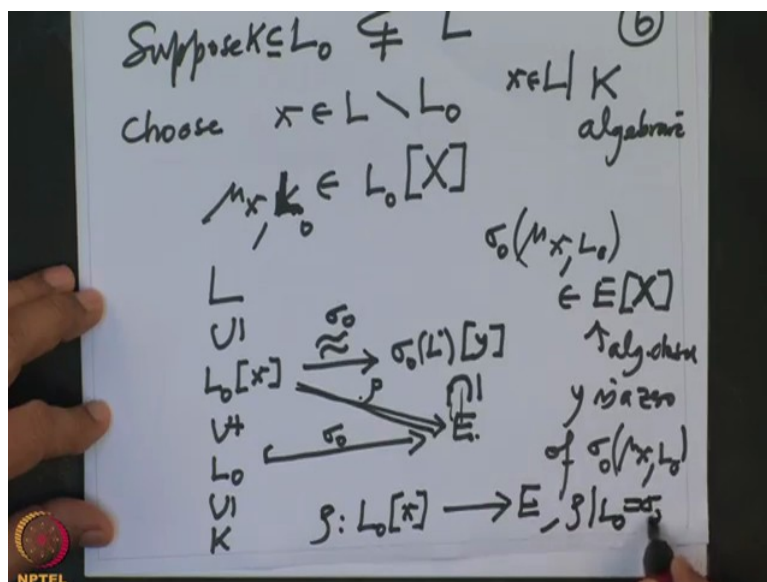 Suppose K ⊆ L₀ ⊊ L
⑥
Choose x ∈ L \ L₀
x ∈ L | K
algebraic
μx, L₀ ∈ L₀[X]
σ₀(μx, L₀)
∈ E[X]
↑ alg. closed
y is a zero
of σ₀(μx, L₀)
L
∪|
L₀[x] ≈ σ₀ → σ₀(L)[y]
ρ
∩|
∪+
E.
L₀ σ₀ →
∪|
K
ρ : L₀[x] → E, ρ|L₀ = σ₀
NPTEL